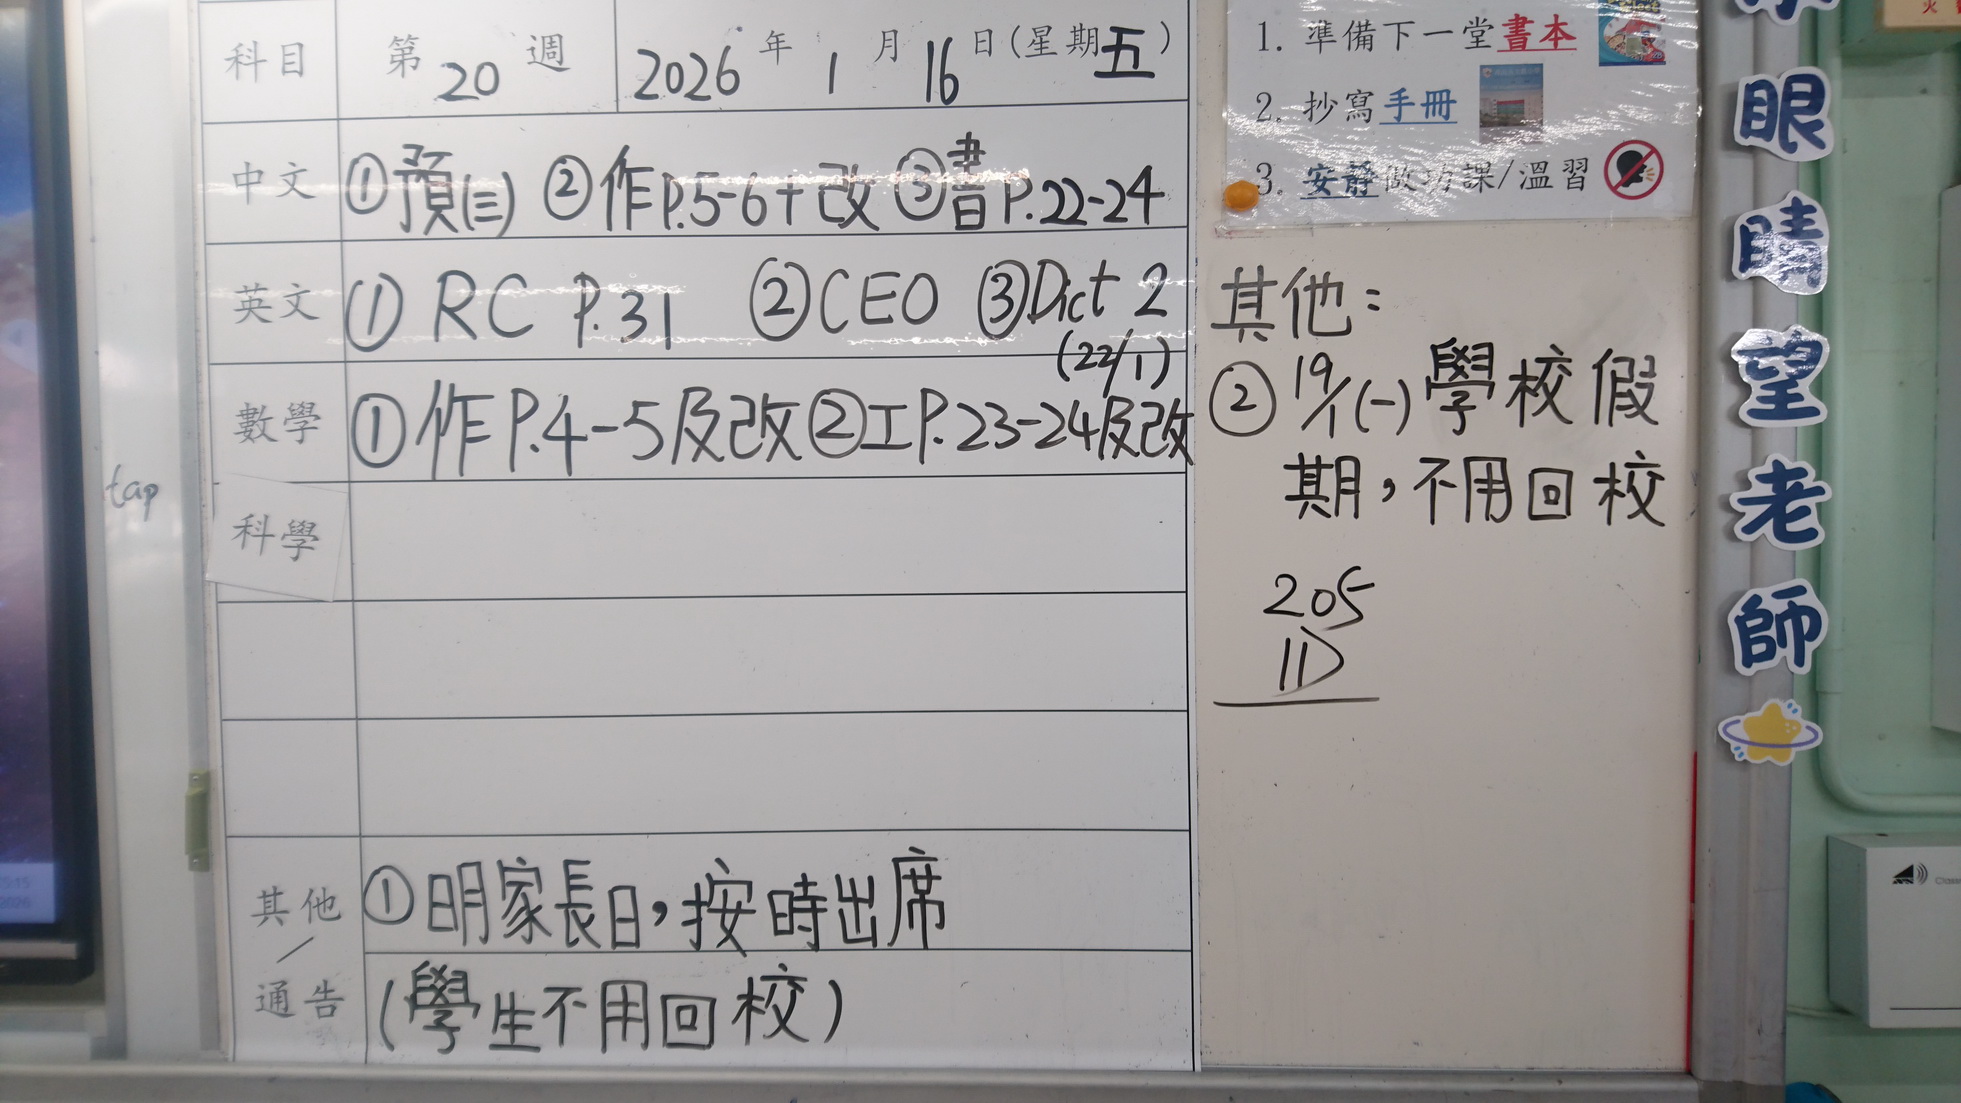 科目 第20週 2026年1月16日(星期五)
中文 ①預(三) ②作P.5-6+改 ③書P.22-24
英文 ① RC P.31 ②CEO ③Dict 2
(22/1)
數學 ①作P.4-5及改②工P.23-24及改
科學
其他/通告 ①明家長日,按時出席
(學生不用回校)
1. 準備下一堂書本
2. 抄寫手冊
3. 安靜做功課/溫習
其他:
② 19/1(一)學校假
期,不用回校
205
tap
眼睛望老師